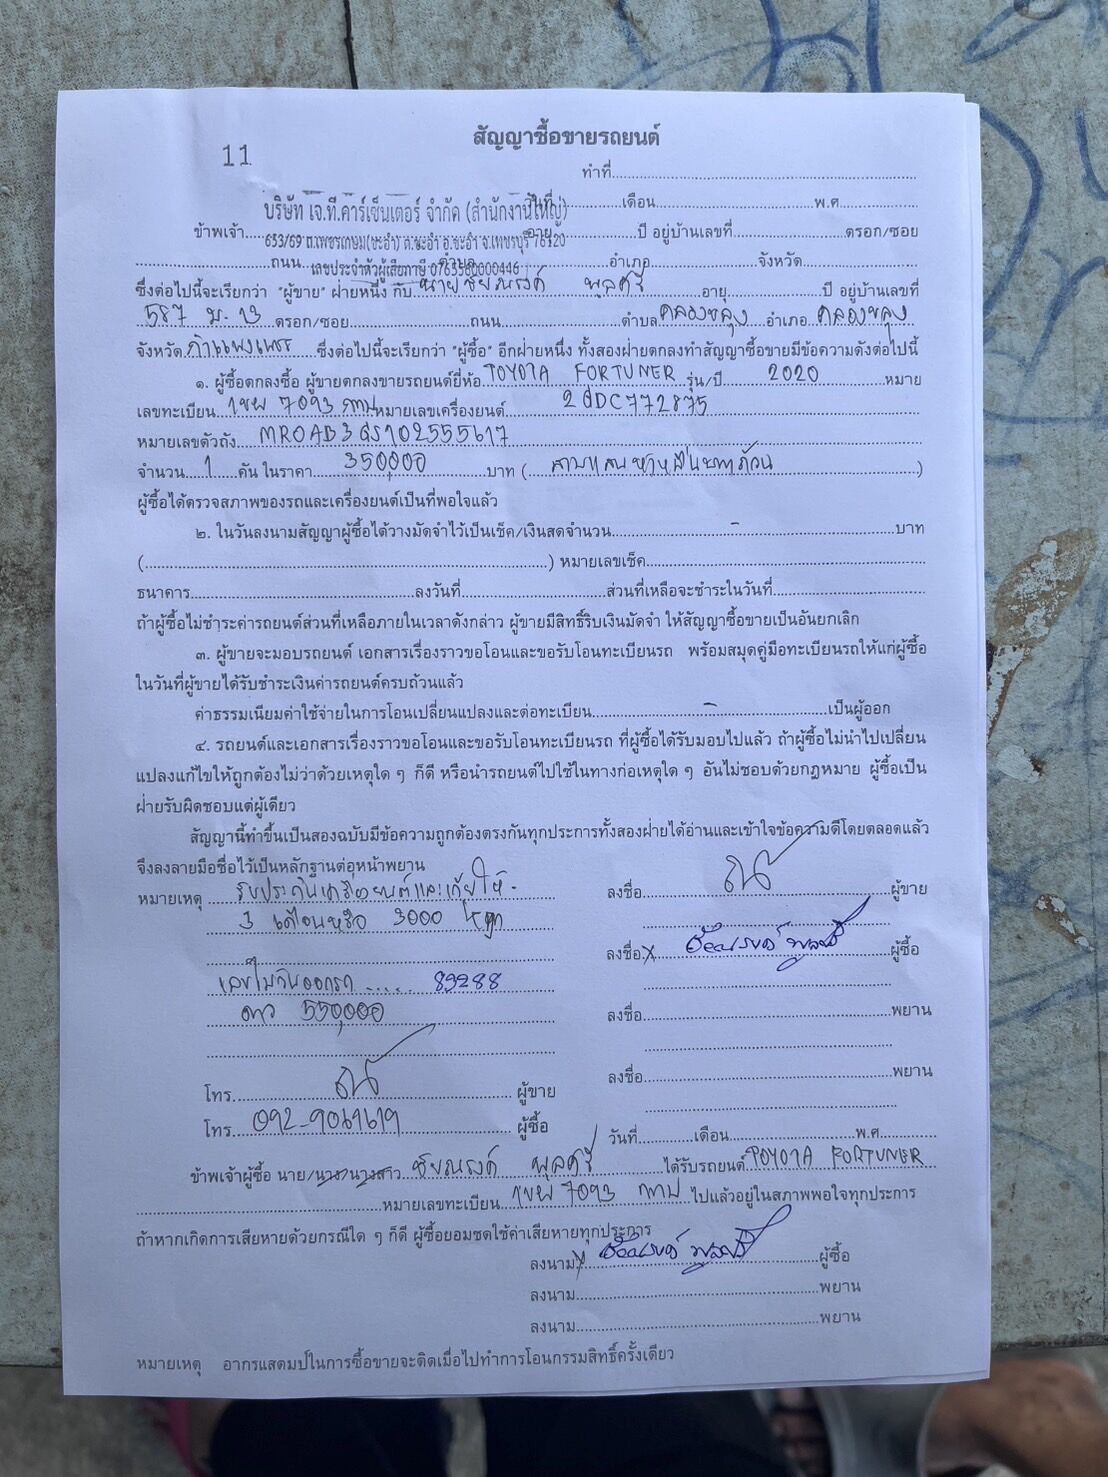 สัญญาซื้อขายรถยนต์
11
ทำที่
บริษัท เจ.ที.คาร์เซ็นเตอร์ จำกัด (สำนักงานใหญ่)
วันที่ เดือน พ.ศ.
ข้าพเจ้า อายุ ปี อยู่บ้านเลขที่ ตรอก/ซอย
653/69 ถ.เพชรเกษม(ชะอำ) ต.ชะอำ อ.ชะอำ จ.เพชรบุรี 76120
ถนน ตำบล อำเภอ จังหวัด
เลขประจำตัวผู้เสียภาษี 0763560000446
ซึ่งต่อไปนี้จะเรียกว่า "ผู้ขาย" ฝ่ายหนึ่ง กับ นายชัยณรงค์ พูลศรี อายุ ปี อยู่บ้านเลขที่
587 ม.13 ตรอก/ซอย ถนน ตำบล คลองขลุง อำเภอ คลองขลุง
จังหวัด กำแพงเพชร ซึ่งต่อไปนี้จะเรียกว่า "ผู้ซื้อ" อีกฝ่ายหนึ่ง ทั้งสองฝ่ายตกลงทำสัญญาซื้อขายมีข้อความดังต่อไปนี้
๑. ผู้ซื้อตกลงซื้อ ผู้ขายตกลงขายรถยนต์ยี่ห้อ TOYOTA FORTUNER รุ่น/ปี 2020 หมาย
เลขทะเบียน 7093 กทม หมายเลขเครื่องยนต์ 2GDC772875
หมายเลขตัวถัง MR0AB3GS102555617
จำนวน 1 คัน ในราคา 350,000 บาท (สามแสนห้าหมื่นบาทถ้วน)
ผู้ซื้อได้ตรวจสภาพของรถและเครื่องยนต์เป็นที่พอใจแล้ว
๒. ในวันลงนามสัญญาผู้ซื้อได้วางมัดจำไว้เป็นเช็ค/เงินสดจำนวน - บาท
( ) หมายเลขเช็ค
ธนาคาร ลงวันที่ ส่วนที่เหลือจะชำระในวันที่
ถ้าผู้ซื้อไม่ชำระค่ารถยนต์ส่วนที่เหลือภายในเวลาดังกล่าว ผู้ขายมีสิทธิ์ริบเงินมัดจำ ให้สัญญาซื้อขายเป็นอันยกเลิก
๓. ผู้ขายจะมอบรถยนต์ เอกสารเรื่องราวขอโอนและขอรับโอนทะเบียนรถ พร้อมสมุดคู่มือทะเบียนรถให้แก่ผู้ซื้อ
ในวันที่ผู้ขายได้รับชำระเงินค่ารถยนต์ครบถ้วนแล้ว
ค่าธรรมเนียมค่าใช้จ่ายในการโอนเปลี่ยนแปลงและต่อทะเบียน - เป็นผู้ออก
๔. รถยนต์และเอกสารเรื่องราวขอโอนและขอรับโอนทะเบียนรถ ที่ผู้ซื้อได้รับมอบไปแล้ว ถ้าผู้ซื้อไม่นำไปเปลี่ยน
แปลงแก้ไขให้ถูกต้องไม่ว่าด้วยเหตุใด ๆ ก็ดี หรือนำรถยนต์ไปใช้ในทางก่อเหตุใด ๆ อันไม่ชอบด้วยกฎหมาย ผู้ซื้อเป็น
ฝ่ายรับผิดชอบแต่ผู้เดียว
สัญญานี้ทำขึ้นเป็นสองฉบับมีข้อความถูกต้องตรงกันทุกประการทั้งสองฝ่ายได้อ่านและเข้าใจข้อความดีโดยตลอดแล้ว
จึงลงลายมือชื่อไว้เป็นหลักฐานต่อหน้าพยาน
หมายเหตุ รับประกันเครื่องยนต์และเกียร์ให้
3 เดือนหรือ 3000
เลขไมล์วันออกรถ ..... 83288
ดาว 550,000
ลงชื่อ ผู้ขาย
ลงชื่อ x ชัยณรงค์ พูลศรี ผู้ซื้อ
ลงชื่อ พยาน
ลงชื่อ พยาน
โทร. ผู้ขาย
โทร. 092-9061619 ผู้ซื้อ
วันที่ เดือน พ.ศ.
ข้าพเจ้าผู้ซื้อ นาย/นาง/นางสาว ชัยณรงค์ พูลศรี ได้รับรถยนต์ TOYOTA FORTUNER
หมายเลขทะเบียน 7093 กทม ไปแล้วอยู่ในสภาพพอใจทุกประการ
ถ้าหากเกิดการเสียหายด้วยกรณีใด ๆ ก็ดี ผู้ซื้อยอมชดใช้ค่าเสียหายทุกประการ
ลงนาม x ชัยณรงค์ พูลศรี ผู้ซื้อ
ลงนาม พยาน
ลงนาม พยาน
หมายเหตุ อากรแสตมป์ในการซื้อขายจะติดเมื่อไปทำการโอนกรรมสิทธิ์ครั้งเดียว